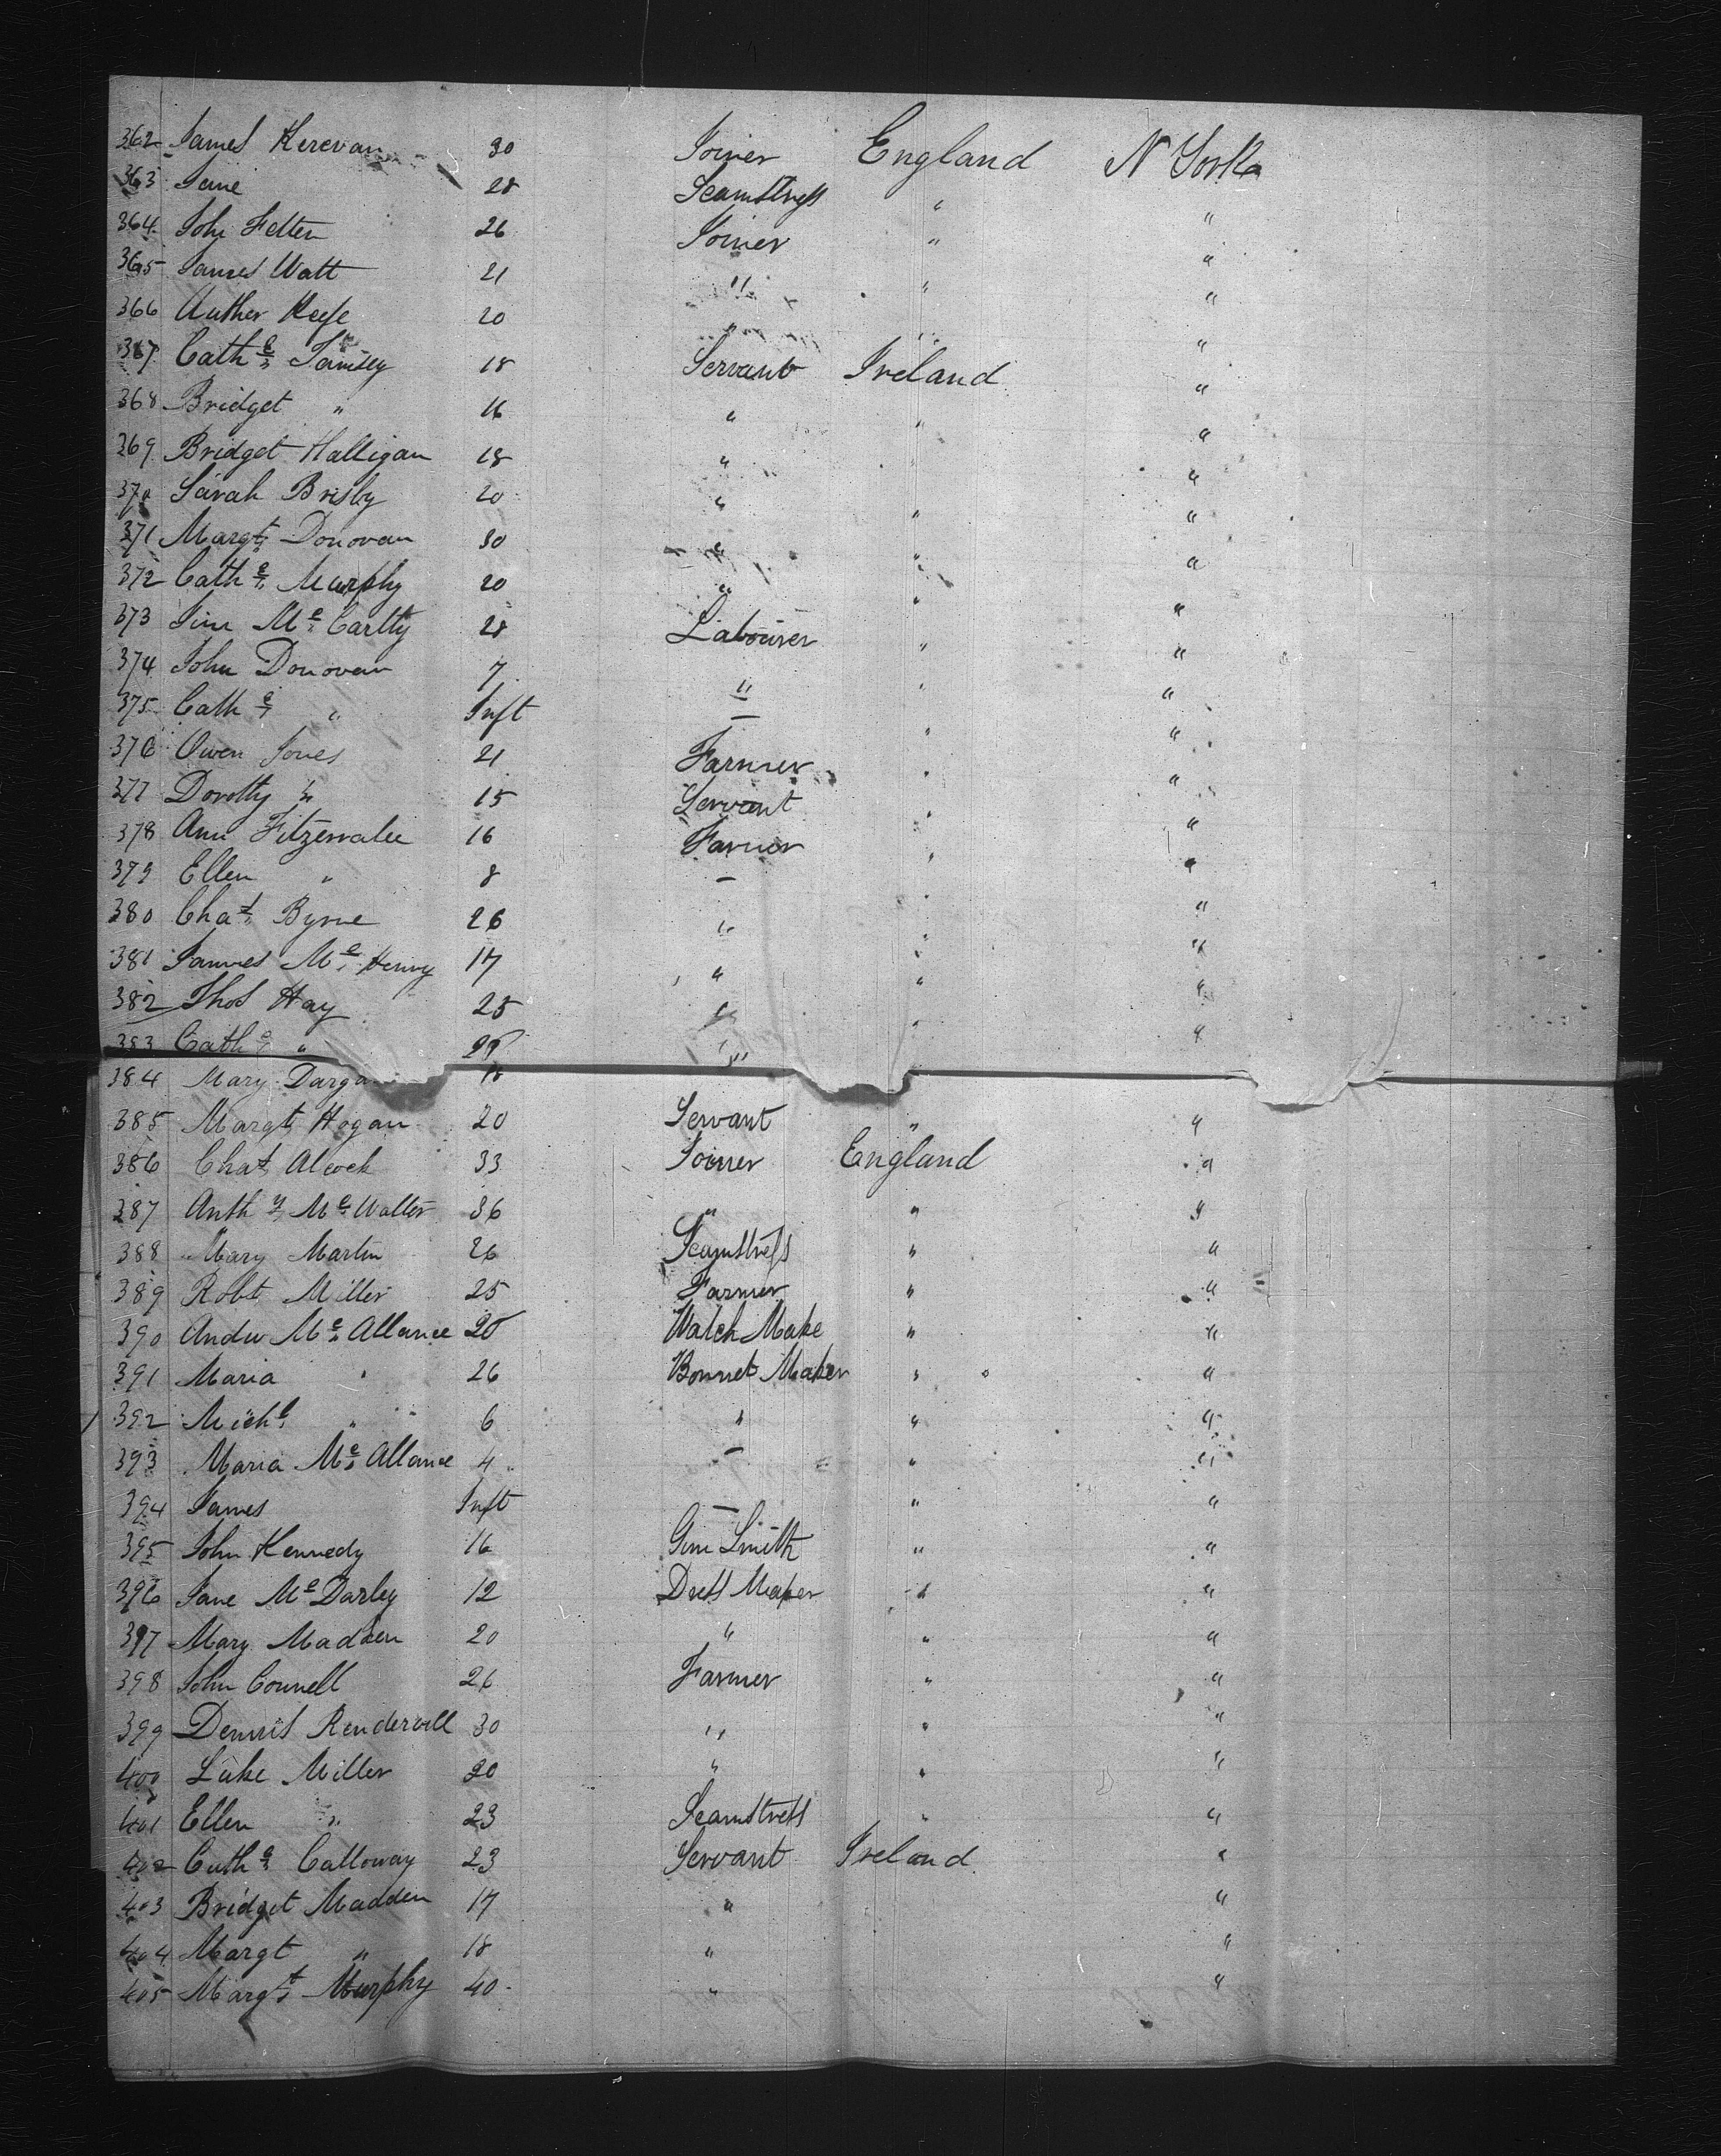 362 James Kerevan 30 Joiner England N York
363 Jane 28 Seamstress " "
364 John Felten 26 Joiner " "
365 James Watt 21 " " "
366 Auther Keefe 20 " " "
367 Cathe 18 Servant Ireland "
368 Bridget " 16 " " "
369 Bridget Halligan 18 " " "
370 Sarah Brisby 20 " " "
371 Margt Donovan 30 " " "
372 Cathe Murphy 20 " " "
373 Jim Mc Cartty 28 Labourer " "
374 John Donovan 7 " " "
375 Cathe " Inft — " "
376 Owen Jones 21 Farmer " "
377 Dorotty " 15 Servant " "
378 Ann 16 Farmer " "
379 Ellen " 8 — " "
380 Chas Byrne 26 " " "
381 James Mc Henry 17 " " "
382 Thos Hay 25 " " "
383 Cathe " " " "
384 Mary 18
385 Margt Hogan 20 Servant " "
386 Chas Alcock 33 Joiner England "
387 Anthy Mc Walter 36 " " "
388 Mary Martin 26 Seamstress " "
389 Robt Miller 25 Farmer " "
390 Andw Mc Allance 28 Watch Make " "
391 Maria " 26 Bonnet Maker " "
392 Michl " 6 " " "
393 Maria Mc Allance 4 — " "
394 James Inft — " "
395 John Kennedy 16 Gun Smith " "
396 Jane Mc Darley 12 Dress Maker " "
397 Mary Madden 20 " " "
398 John Connell 26 Farmer " "
399 Dennis Rendervill 30 " " "
400 Luke Miller 20 " " "
401 Ellen " 23 Seamstress " "
402 Cathe Calloway 23 Servant Ireland "
403 Bridget Madden 17 " "
404 Margt " 18 " "
405 Margt Murphy 40 " "